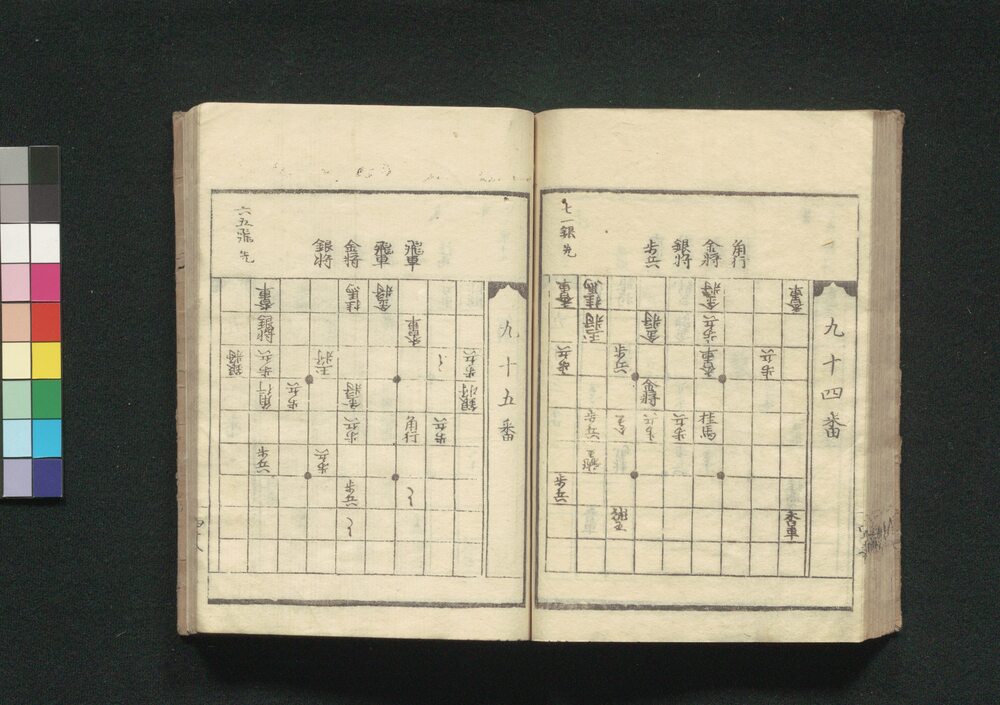 九十四番
角行
金将
銀将
歩兵
七一銀先
香車
金将
桂馬
香車
歩兵
金将
玉将
歩兵
香車
歩兵
歩兵
金将
桂馬
歩兵
歩兵
歩兵
歩兵
香車
九十五番
飛車
飛車
金将
銀将
六五飛先
金将
桂馬
香車
香車
銀将
歩兵
玉将
歩兵
銀将
銀将
金将
歩兵
角行
歩兵
角行
歩兵
歩兵
歩兵
歩兵